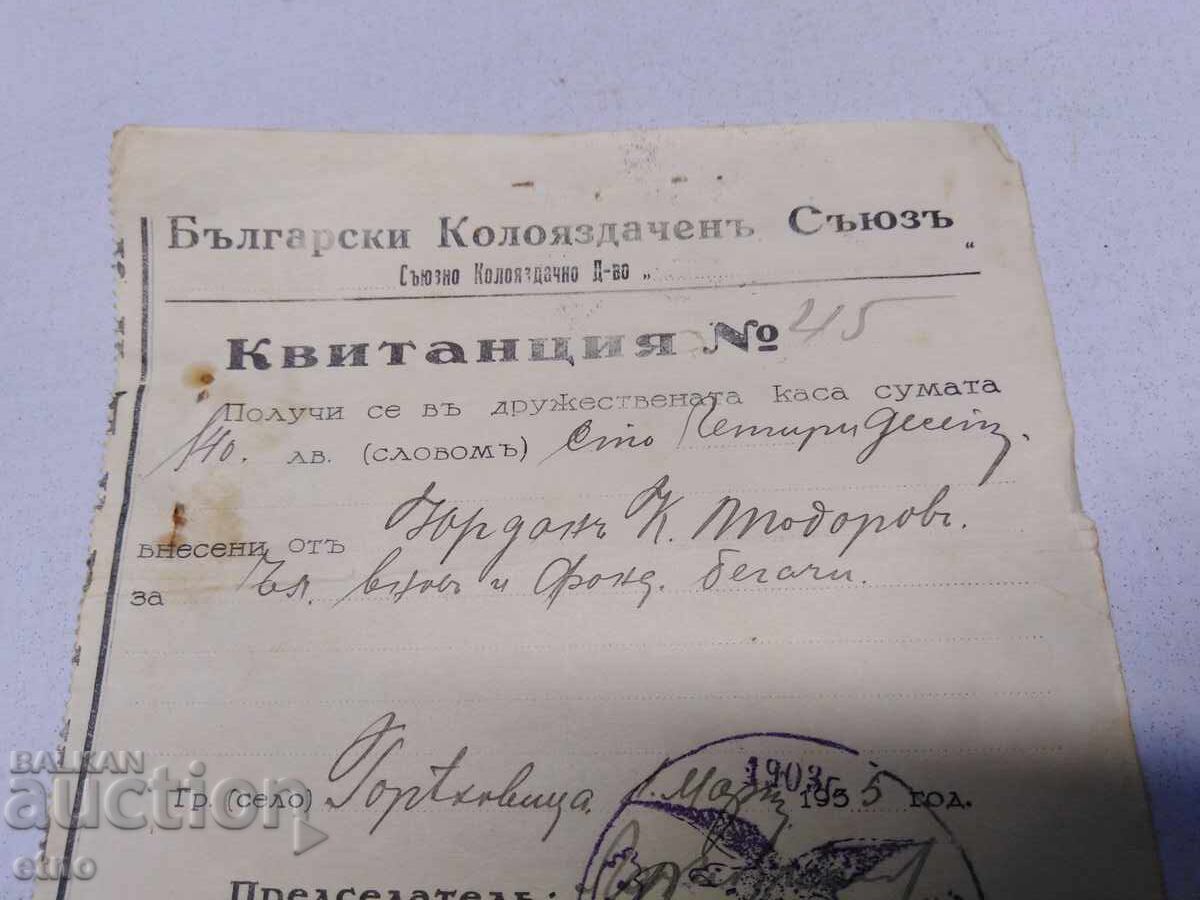 Български Колоязд­аченъ Съюзъ
Съюзно Колояздачно Д-во „ “
Квитанция № 45
Получи се въ дружествената каса сумата
140. лв. (словомъ) Сто Четири десетъ
внесени отъ Йорданъ К. Тодоровъ.
за Чл. вносъ и Фонд. бегачи.
Гр. (село) Горѣховица. 1. Мартъ 1935 год.
1903
Председатель:
BALKAN
auction
etno